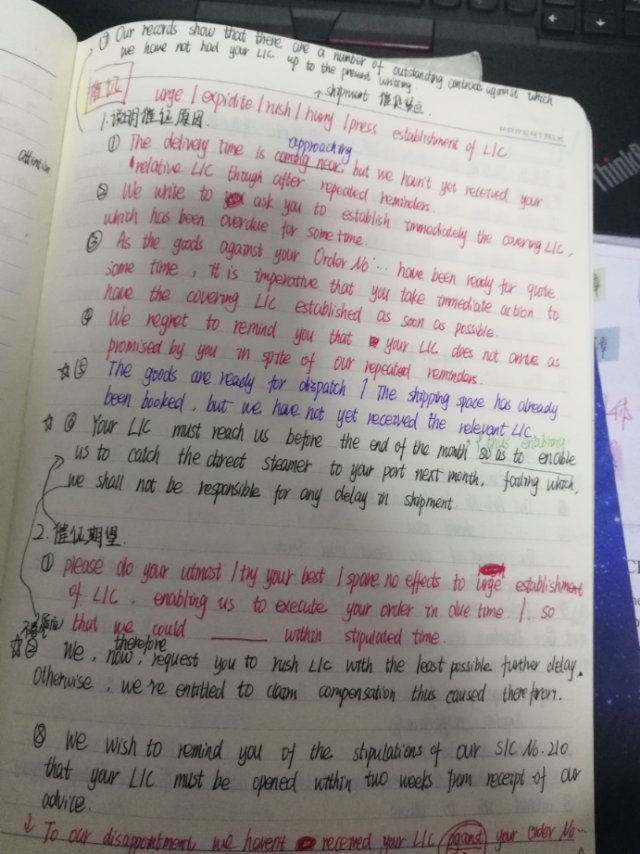 ⑦ Our records show that there are a number of outstanding contracts against which
we have not had your L/C up to the present writing.
↗ shipment 催装
催证
urge / expidite / rush / hurry / press establishment of L/C
PAPERTALK
1. 说明催证原因.
approaching
① The delivery time is coming near, but we haven't yet received your
relative L/C though after repeated reminders.
② We write to ask you to establish immediately the covering L/C,
which has been overdue for some time.
③ As the goods against your Order No ... have been ready for quite
some time, it is imperative that you take immediate action to
have the covering L/C established as soon as possible.
④ We regret to remind you that your L/C does not arrive as
promised by you in spite of our repeated reminders.
☆ ⑤ The goods are ready for dispatch / The shipping space has already
been booked, but we have not yet received the relevant L/C.
, thus enabling
☆ ⑥ Your L/C must reach us before the end of the month so as to enable
us to catch the direct steamer to your port next month, failing which,
we shall not be responsible for any delay in shipment.
2. 催证期望.
① please do your utmost / try your best / spare no effects to urge establishment
of L/C, enabling us to execute your order in due time /. so
that we could ______ within stipulated time.
therefore
☆ ② We, now, request you to rush L/C with the least possible further delay.
Otherwise, we're entitled to claim compensation thus caused therefrom.
⑧ We wish to remind you of the stipulations of our S/C No. 210
that your L/C must be opened within two weeks from receipt of our
advice.
↓ To our disappointment, we haven't received your L/C against your Order No...
attention
ThinkP